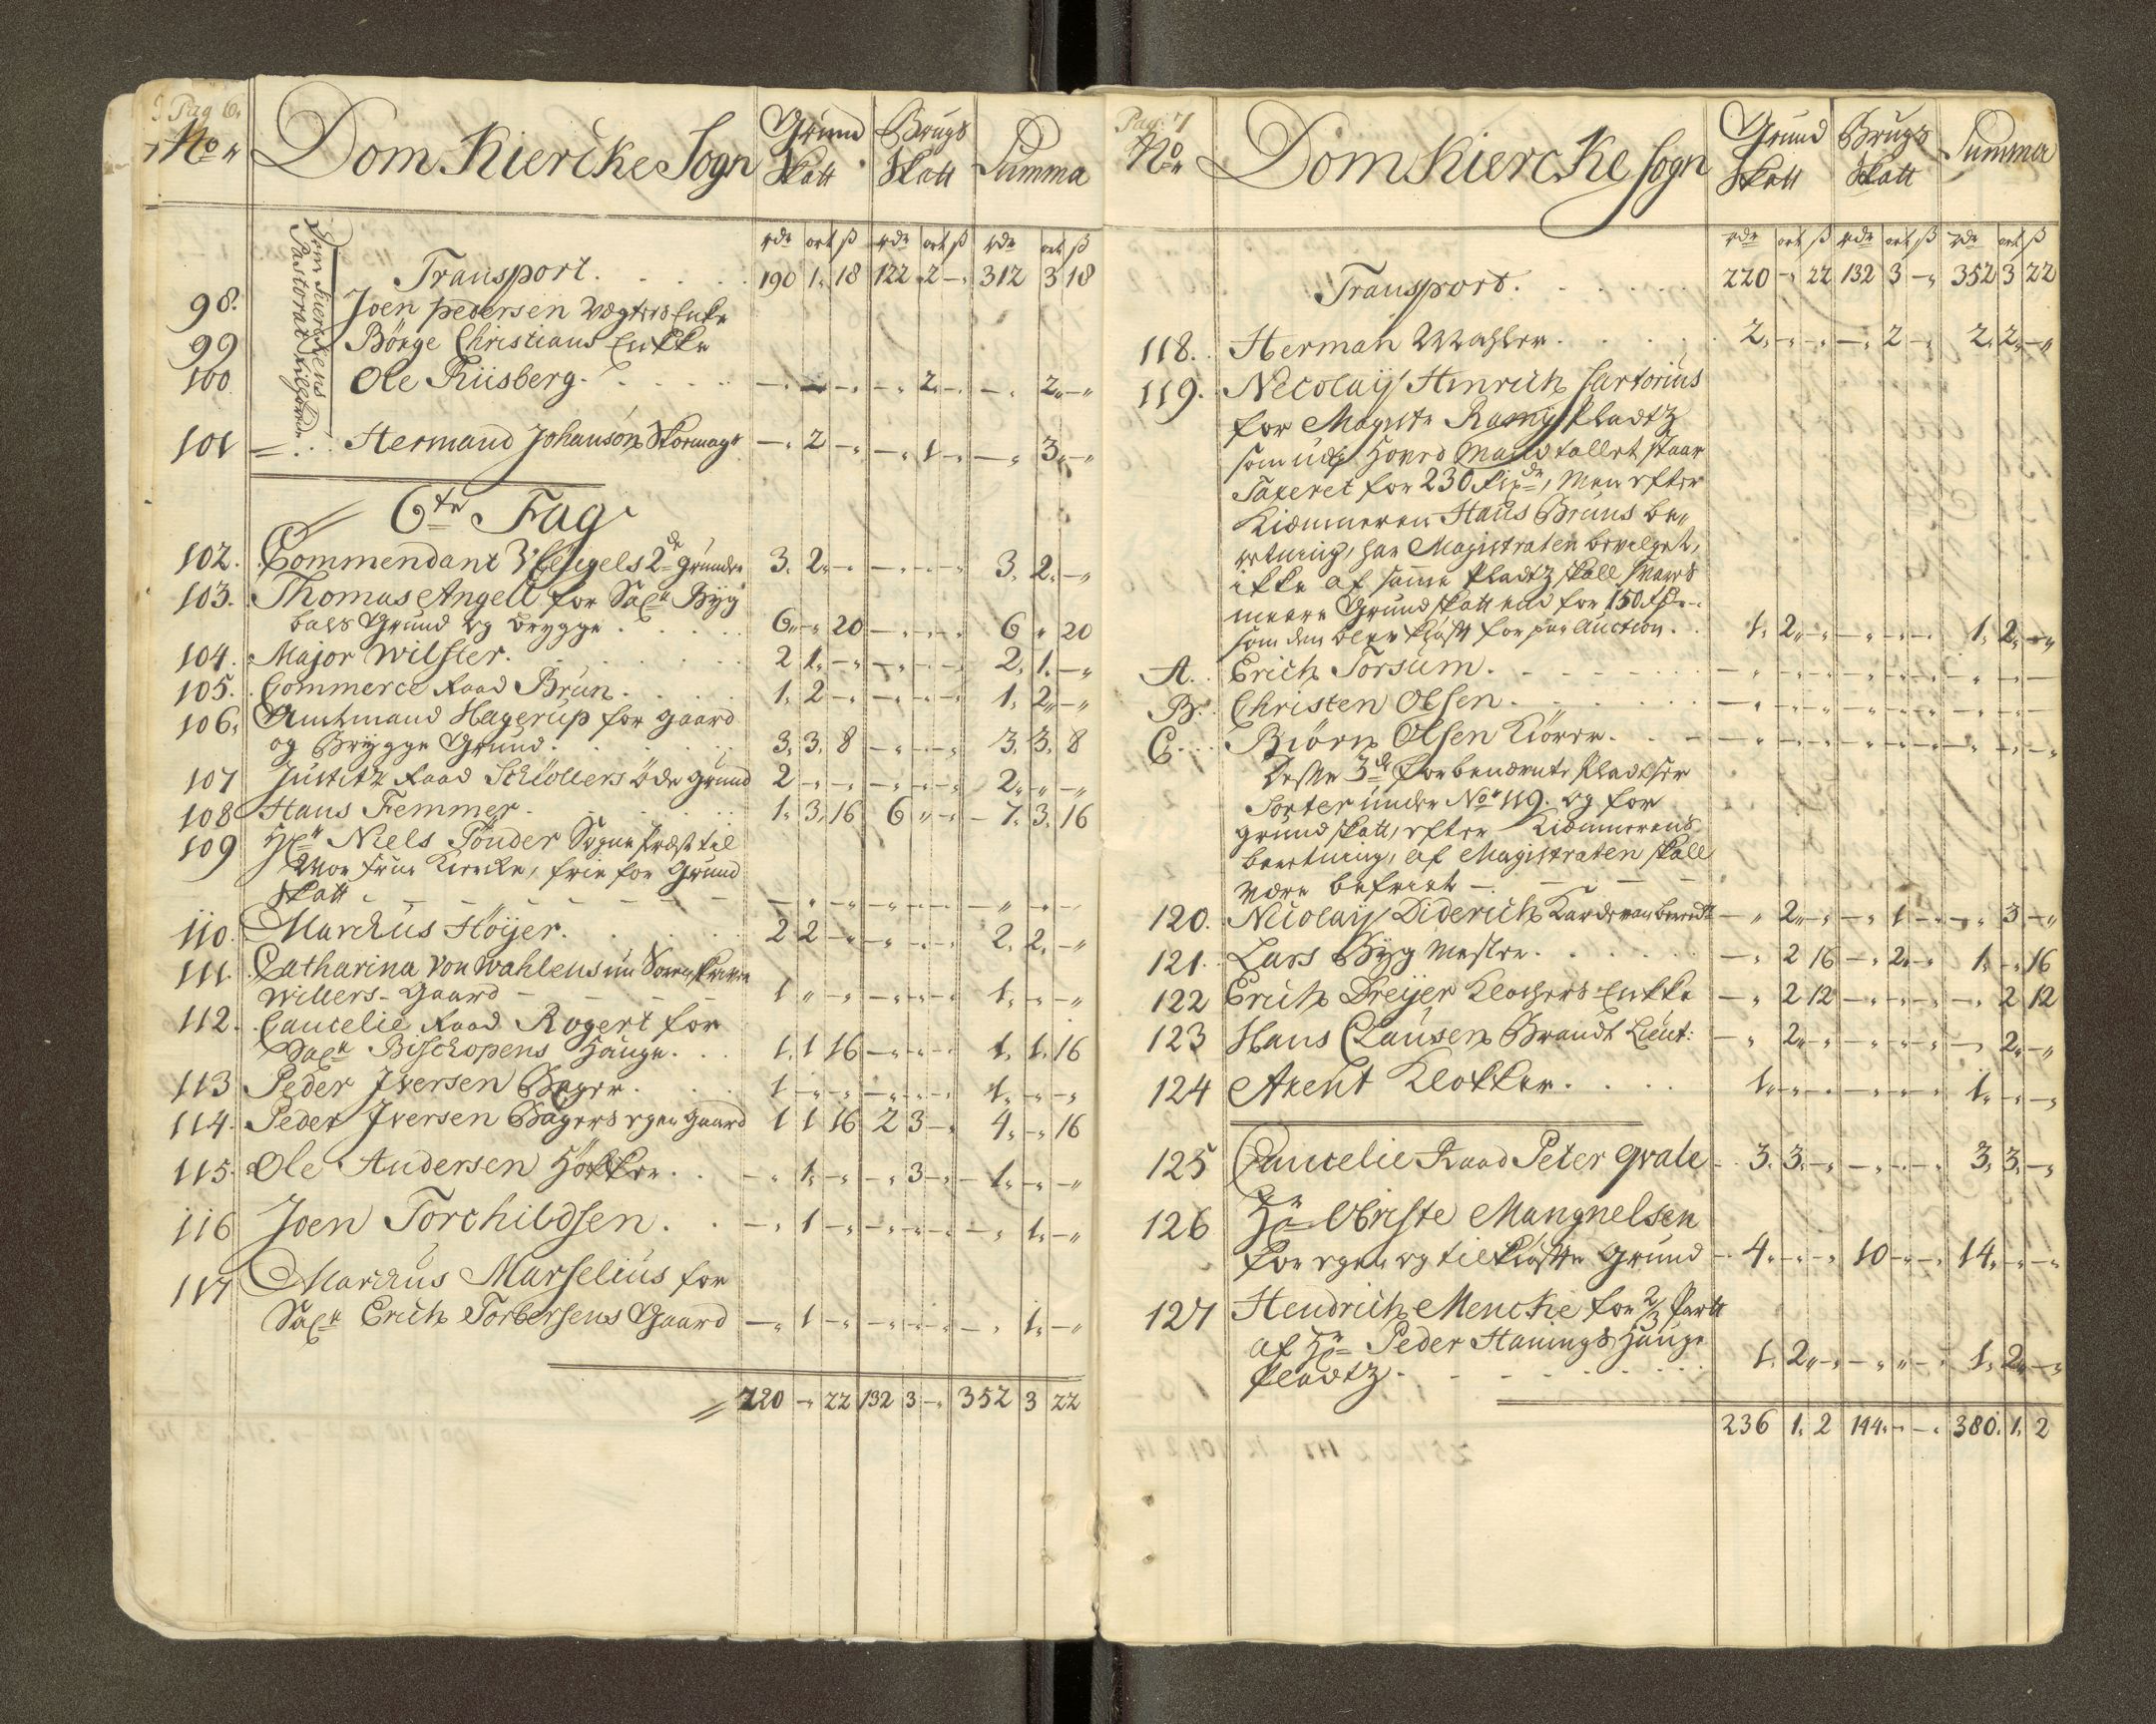 Pag 6.
No
Dom Kiercke Sogn
Grund Skatt
Brugs Skatt
Summa
rdr ort ß rdr ort ß rdr ort ß
Dom Kierckens
Pastorat tilhører
Transport. 190 1. 18 122 2 - 312 3 18
98. Joen pedersen Vegters Enke
99 Börge Christians Enkke
100 Ole Riisberg. - - - - 2 - - 2 -
101 Hermand Johanson Skomagr - 2 - - 1 - - 3 -
6te Fag
102. Commendant Weigels 2de grunder 3. 2. - - - - 3. 2. -
103. Thomas Angell for Sal Byg
bols Grund og brygge 6 - 20 - - - 6 - 20
104. Major Wilster. 2 1. - - - - 2. 1. -
105. Commerce Raad Brun. 1. 2 - - - - 1. 2 -
106. Amtmand Hagerup for gaard
og Brygge Grund. 3. 3. 8 - - - 3. 3. 8
107 Justitz Raad Schöllers öde grund 2 - - - - - 2 - -
108 Hans Femmer. 1. 3. 16 6 - - 7. 3. 16
109 Hr Niels Tönder Sogne Præst til
Vor Frue Kiercke, frie for Grund
Skatt - - - - - - - - -
110. Marcus Höyer. 2 2 - - - - 2. 2. -
111. Catharina Von Wahlens
Willers Gaard 1 - - - - - 1. - -
112. Cancelie Raad Rogert for
Sal Bischopens Hauge. 1. 1 16 - - - 1. 1. 16
113 Peder Iversen Bager. 1 - - - - - 1. - -
114. Peder Iversen Bagers egen gaard 1 1 16 2 3 - 4. - 16
115. Ole Andersen Hökker. - 1. - - 3 - 1. - -
116 Joen Torchildsen. - 1 - - - - - 1. -
117 Marcus Marselius for
Sal Erich Torbersens Gaard - 1 - - - - - 1. -
220 - 22 132 3 - 352 3 22
Pag. 7
No
Dom Kiercke sogn
Grund Skatt
Brugs Skatt
Summa
rdr ort ß rdr ort ß rdr ort ß
Transport. 220 - 22 132 3 - 352 3 22
118. Herman Mahler. 2. - - - 2 - 2. 2. -
119. Nicolaij Hinrich Sartorius
for Plaatz
som udj Hoved Mandtallet staar
Taxeret for 230 rdr, Men efter
Kiæmneren Hans Bruns be-
retning, har Magistraten bevilget,
ikke af samme Plaatz skall svares
meere Grundskatt end for 150 rdr.
som den blev kiöbt for paa Auction. 1. 2. - - - - 1. 2. -
A. Erich Torsum. - - - - - - - - -
B. Christen Olsen. - - - - - - - - -
C. Biörn Olsen Kiörer. - - - - - - - - -
Disse 3de forbenævnte Pladser
Sorter under No 119. og for
grundskatt, efter Kiæmnerens
beretning, af Magistraten skall
være befriet -
120. Nicolaij Diderich - 2. - - 1 - - 3 -
121. Lars Bygmester. - 2 16 - 2. - 1. - 16
122 Erich Dreijer Klochers Enkke - 2 12 - - - - 2 12
123 Hans Clausen Brandt Lieut: - 2. - - - - - 2. -
124 Arent Klokker. 1. - - - - - 1. - -
125 Cancelie Raad Peter Qvale 3. 3. - - - - 3. 3. -
126 Hr Obriste Mangnelsen
for egen og tilkiöbte Grund 4. - - 10 - - 14. - -
127 Hendrich Mencke for 2/3 Part
af Hr Peder Hanings Hauge
Plaatz. 1. 2. - - - - 1. 2. -
236 1. 2 144. - - 380. 1. 2